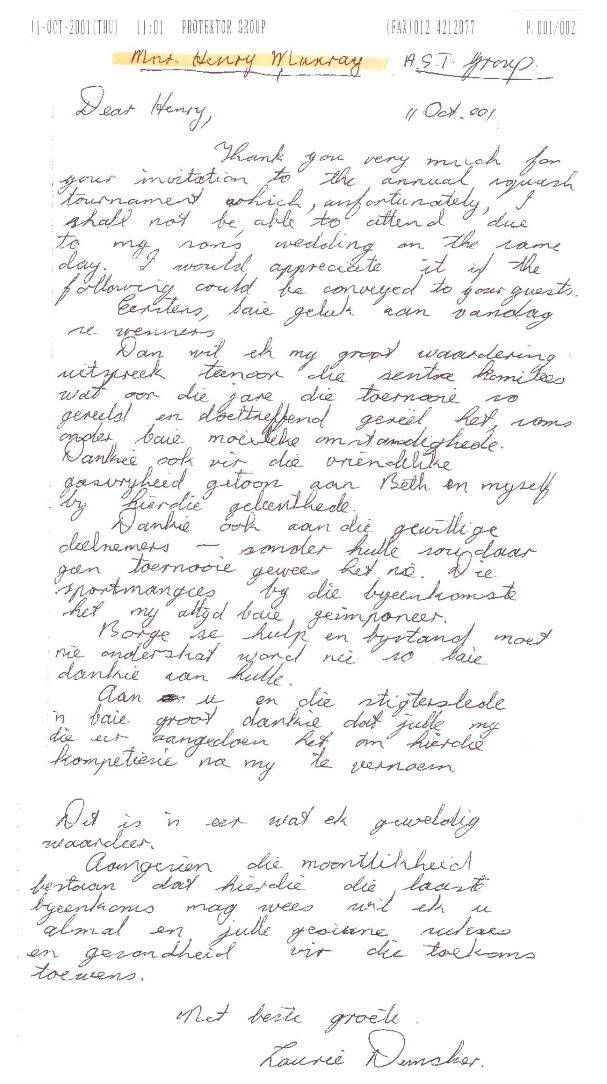 11-OCT-2001(THU) 11:01 PROTEKTOR GROUP (FAX)012 4212077 P.001/002
Mnr. Henry Murray A.S.T. Group.
Dear Henry, 11 Oct. 001
Thank you very much for
your invitation to the annual squash
tournament which, unfortunately, I
shall not be able to attend due
to my sons wedding on the same
day. I would appreciate it if the
following could be conveyed to your guests.
Eerstens, baie geluk aan vandag
se wenners
Dan wil ek my groot waardering
uitspreek teenoor die sentra komitees
wat oor die jare die toernooie so
gereeld en doeltreffend gereël het, soms
onder baie moeilike omstandighede.
Dankie ook vir die vriendelike
gasvryheid getoon aan Beth en myself
by hierdie geleenthede.
Dankie ook aan die gewillige
deelnemers – sonder hulle sou daar
gen toernooie gewees het nie. Die
sportmangees by die byeenkomste
het my altyd baie geïmponeer.
Borge se hulp en bystand moet
nie onderskat word nie so baie
dankie aan hulle.
Aan u en die stigterslede
'n baie groot dankie dat julle my
die eer aangedoen het om hierdie
kompetisie na my te vernoem
Dit is 'n eer wat ek geweldig
waardeer.
Aangesien die moontlikheid
bestaan dat hierdie die laaste
byeenkoms mag wees wil ek u
almal en julle gesinne sukses
en gesondheid vir die toekoms
toewens.
Met beste groete.
Laurie